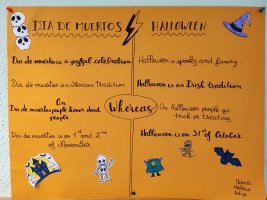 DIA DE MUERTOS
HALLOWEEN
Dia de muertos is a joyful celebration
Dia de muertos is a Mexican tradition
On
Dia de muertos people honor dead
people
Dia de muertos is on 1st and 2nd
of November
Whereas
Halloween is spooky and funny.
Halloween is an Irish tradition
On Halloween people go
trick or treating.
Halloween is on 31st of October